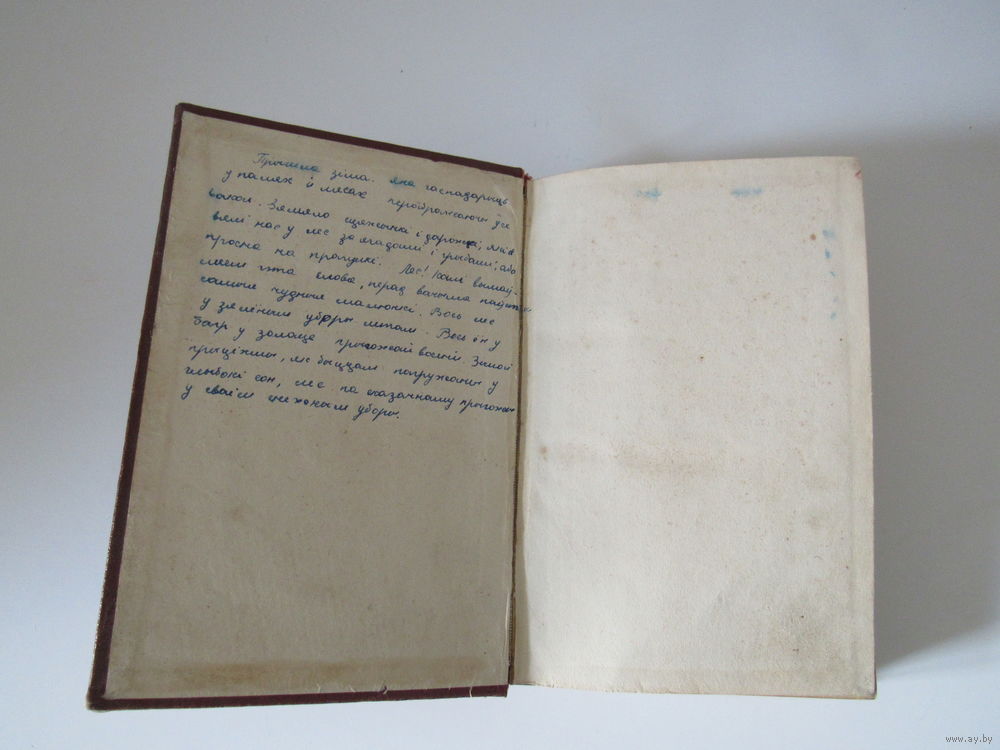 Прышла зіма. яна гаспадарыць
у палях й лясах перейбражаючы ўсе
вакол. Замяло сцяжынкі і дарожкі, якія
вялі нас у лес за ягадамі і грыбамі, або
проста на прагулкі. Лес! Калі вымаў-
ляеш гэта слова, перад вачыма паўстаюць
самыя чудныя малюнкі. Вось лес
у зялёным уборы летам. Вось ён у
багр у золаце прыгожай восені. Зімой
прыціхшы, лес быццам пагружаны у
глыбокі сон, лес па сказачнаму прыгожы
у сваім снежным уборы.
www.ay.by